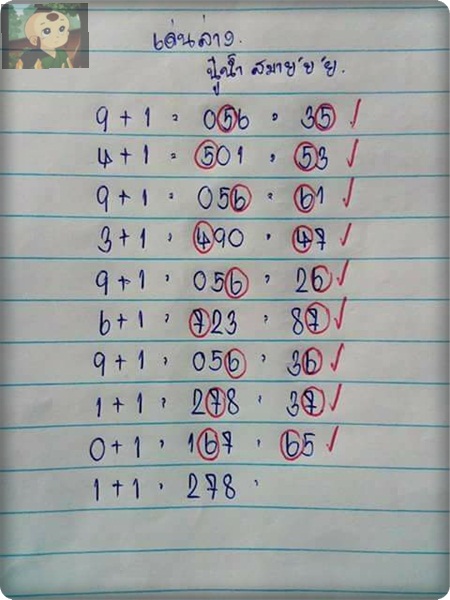 เด่นล่าง.
ปู่น้ำ สมาย ย ย.
9 + 1 = 056 = 35 ✓
4 + 1 = 501 = 53 ✓
9 + 1 = 056 = 61 ✓
3 + 1 = 490 = 47 ✓
9 + 1 = 056 = 26 ✓
6 + 1 = 723 = 87 ✓
9 + 1 = 056 = 36 ✓
1 + 1 = 278 = 37 ✓
0 + 1 = 167 = 65 ✓
1 + 1 = 278 =